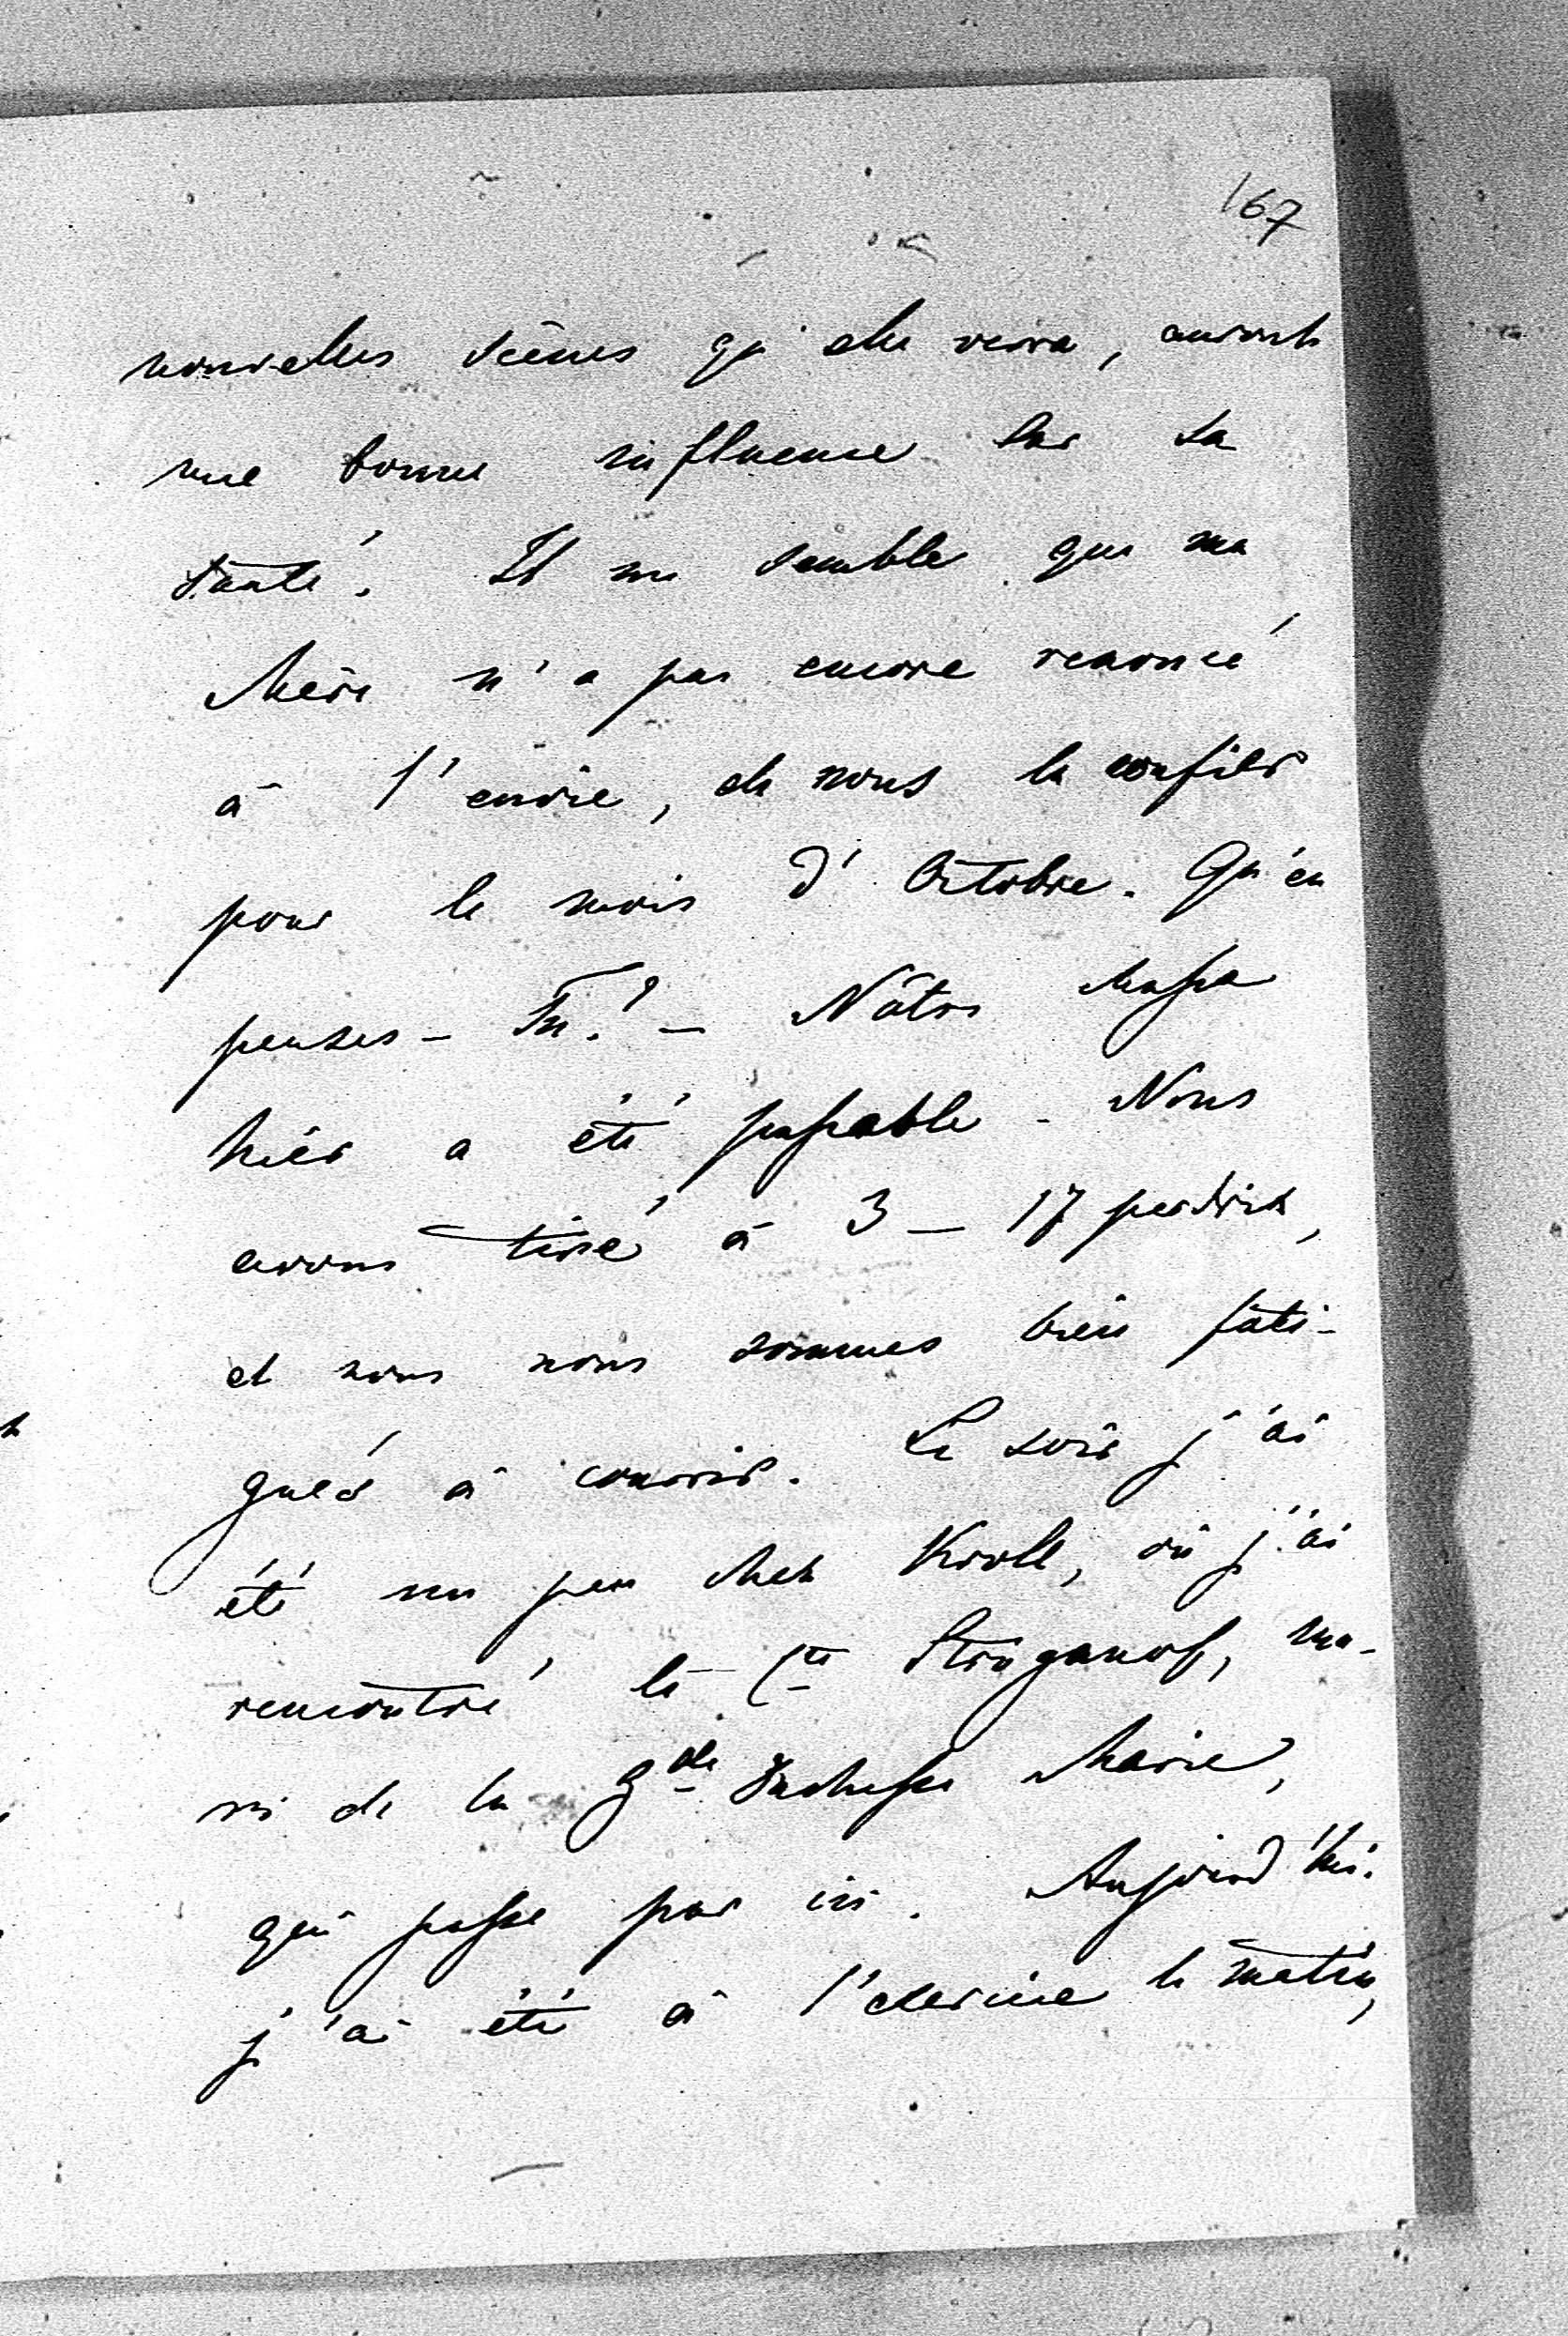 167
nouvelles scènes qu'elle verra, auront
une bonne influence sur sa
santé. Il me semble que ma
Mère n'a pas encore renoncé
à l'envie, de nous la confier
pour le mois d'Octobre. Qu'en
penses-Tu? – Nôtre chasse
hier a été passable. Nous
avons tiré à 3 – 17 perdrix,
et nous nous sommes bien fati-
gués à courrir. Le soir j'ai
été un peu chez Kroll, où j'ai
rencontré le Cte Stroganoff, ma-
ri de la Gde Duchesse Marie,
qui passe par ici. Aujourd'hui
j'ai été à l'exercice le matin,